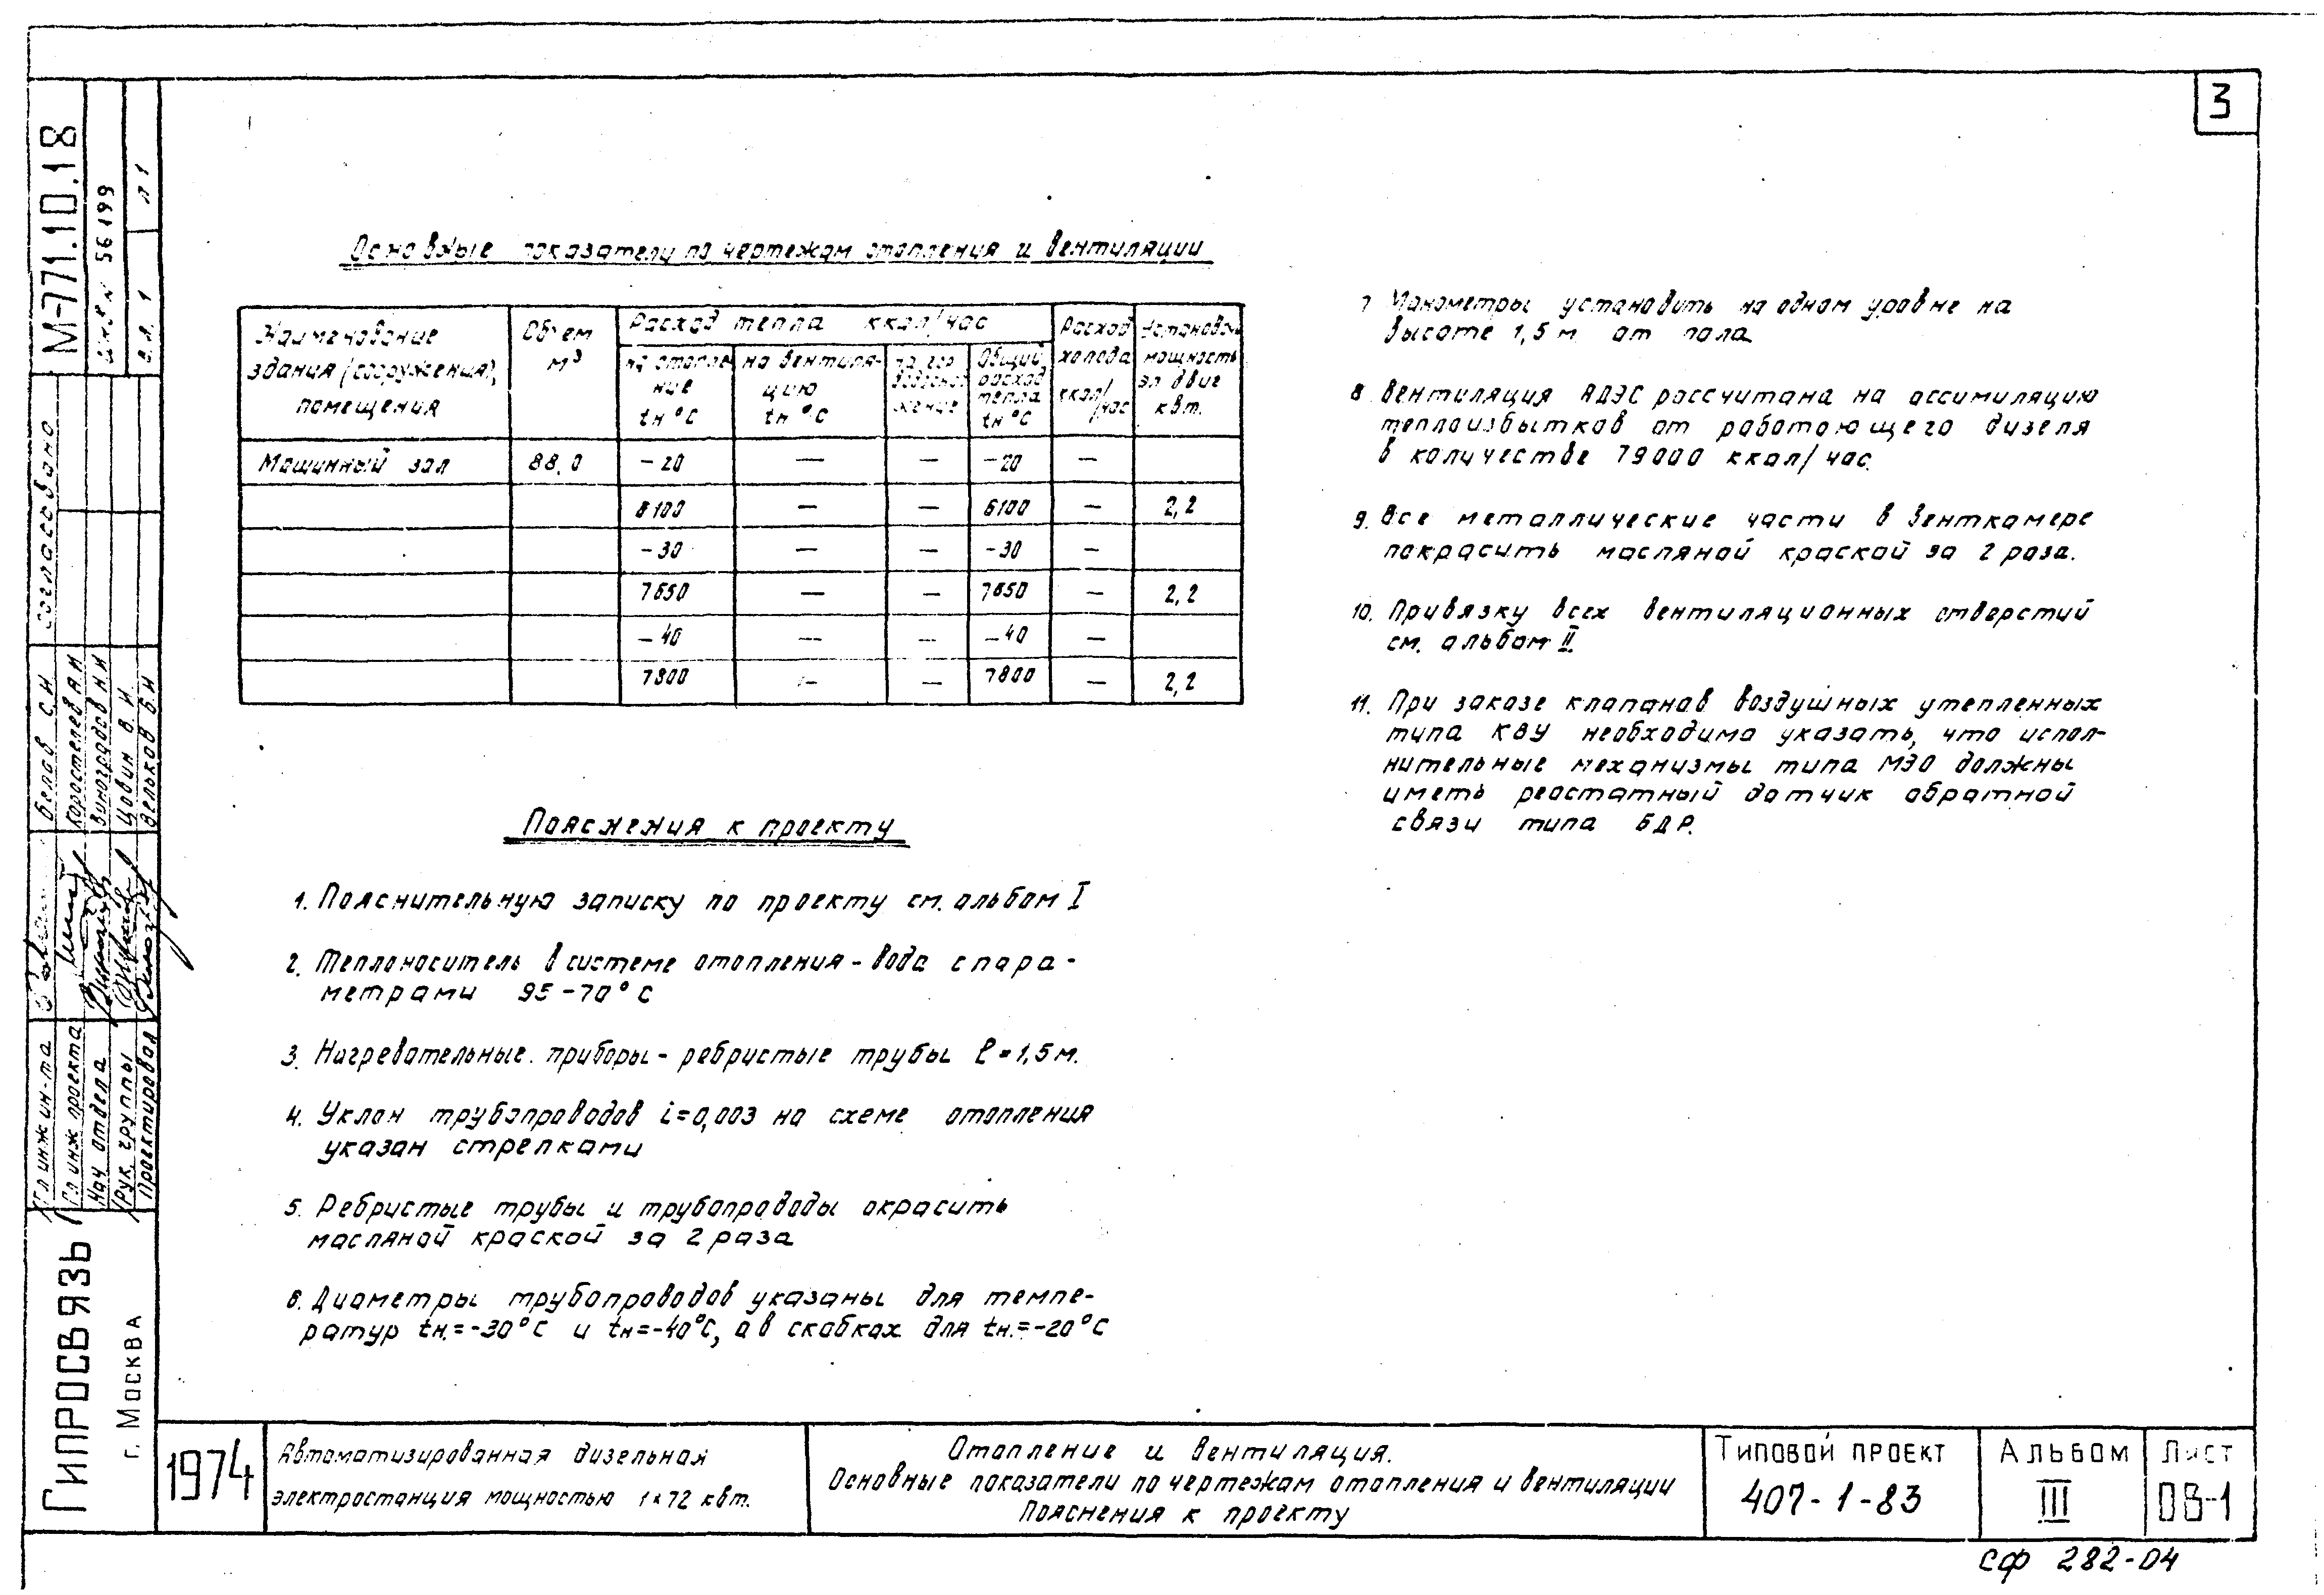 3
М-771.10.18
инв N 56199
в.л. 1 л 1
согласовано
Гл инж ин-та Белов С.И
Гл инж проекта Коростелев А.И
Нач отдела Виноградов Н.И
Рук. группы Цовин В И
Проектировал Вельков Б.И
Гипросвязь
г. Москва
Основные показатели по чертежам отопления и вентиляции
Наименование здания (сооружения), помещения
Объем м³
Расход тепла ккал/час
на отопление tн °С
на вентиляцию tн °С
на гор водоснабжение
Общий расход тепла tн °С
Расход холода ккал/час
Установоч мощность эл двиг квт.
Машинный зал 88,0 -20 — — -20 —
6100 — — 6100 — 2,2
-30 — — -30 —
7650 — — 7650 — 2,2
-40 — — -40 —
7800 — — 7800 — 2,2
Пояснения к проекту
1. Пояснительную записку по проекту см. альбом I
2. Теплоноситель в системе отопления - вода с пара-
метрами 95-70°С
3. Нагревательные приборы - ребристые трубы ℓ=1,5м.
4. Уклон трубопроводов i=0,003 на схеме отопления
указан стрелками
5. Ребристые трубы и трубопроводы окрасить
масляной краской за 2 раза
6. Диаметры трубопроводов указаны для темпе-
ратур tн.=-30°С и tн=-40°С, а в скобках для tн.=-20°С
7 Манометры установить на одном уровне на
высоте 1,5 м от пола
8 Вентиляция АДЭС рассчитана на ассимиляцию
теплоизбытков от работающего дизеля
в количестве 79000 ккал/час.
9. Все металлические части в венткамере
покрасить масляной краской за 2 раза.
10. Привязку всех вентиляционных отверстий
см. альбом II.
11. При заказе клапанов воздушных утепленных
типа КВУ необходимо указать, что испол-
нительные механизмы типа МЭО должны
иметь реостатный датчик обратной
связи типа БДР.
1974
Автоматизированная дизельная
электростанция мощностью 1×72 квт.
Отопление и вентиляция.
Основные показатели по чертежам отопления и вентиляции
Пояснения к проекту
Типовой проект
407-1-83
Альбом
III
Лист
ОВ-1
сф 282-04